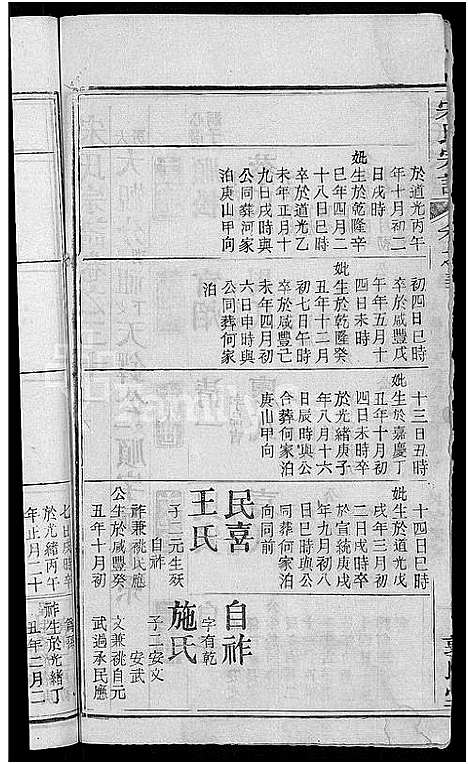 宋氏宗譜
於道光丙午
年十月初二
日戌時
妣生於乾隆辛
巳年四月二
十八日巳時
卒於道光乙
未年正月十
九日戌時與
公同葬何家
泊庚山甲向
初四日巳時
卒於咸豐戊
午年五月十
四日未時
妣生於乾隆癸
丑年十二月
初七日午時
卒於咸豐己
未年四月初
六日申時與
公同葬何家
泊
十三日丑時
妣生於嘉慶丁
丑年十月初
四日未時卒
於光緒庚子
年八月十六
日辰時與公
合葬何家泊
庚山甲向
十四日巳時
妣生於道光戊
戌年三月初
二日戌時卒
於宣統庚戌
年九月初八
日巳時與公
同葬何家泊
向同前
民喜
王氏
子二元生殀
自祚
祚兼祧民應
公生於咸豐癸
丑年十月初
自祚
字有乾
施氏
子二安文
安武
文兼祧自元
武過承民應
祚生於光緒丁
丑年二月二
於光緒丙午
年正月二十